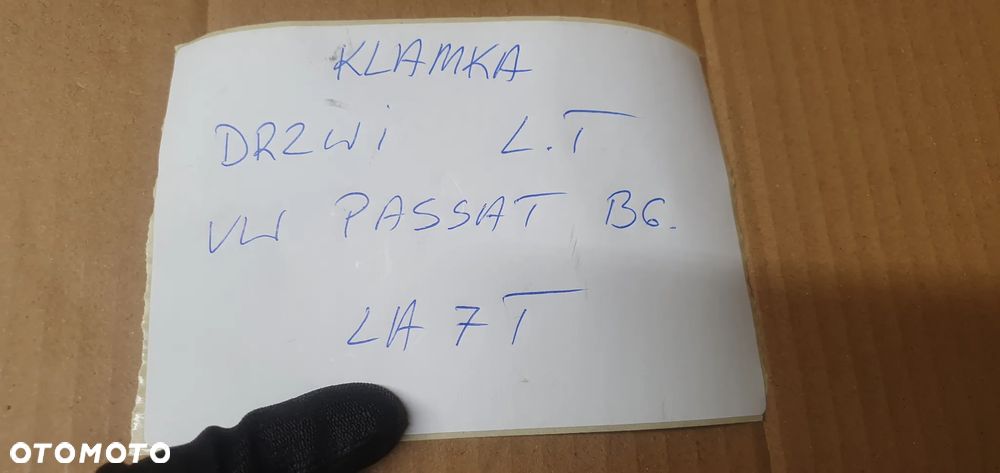 KLAMKA
DRZWI L.T
VW PASSAT B6.
LA7T
OTOMOTO